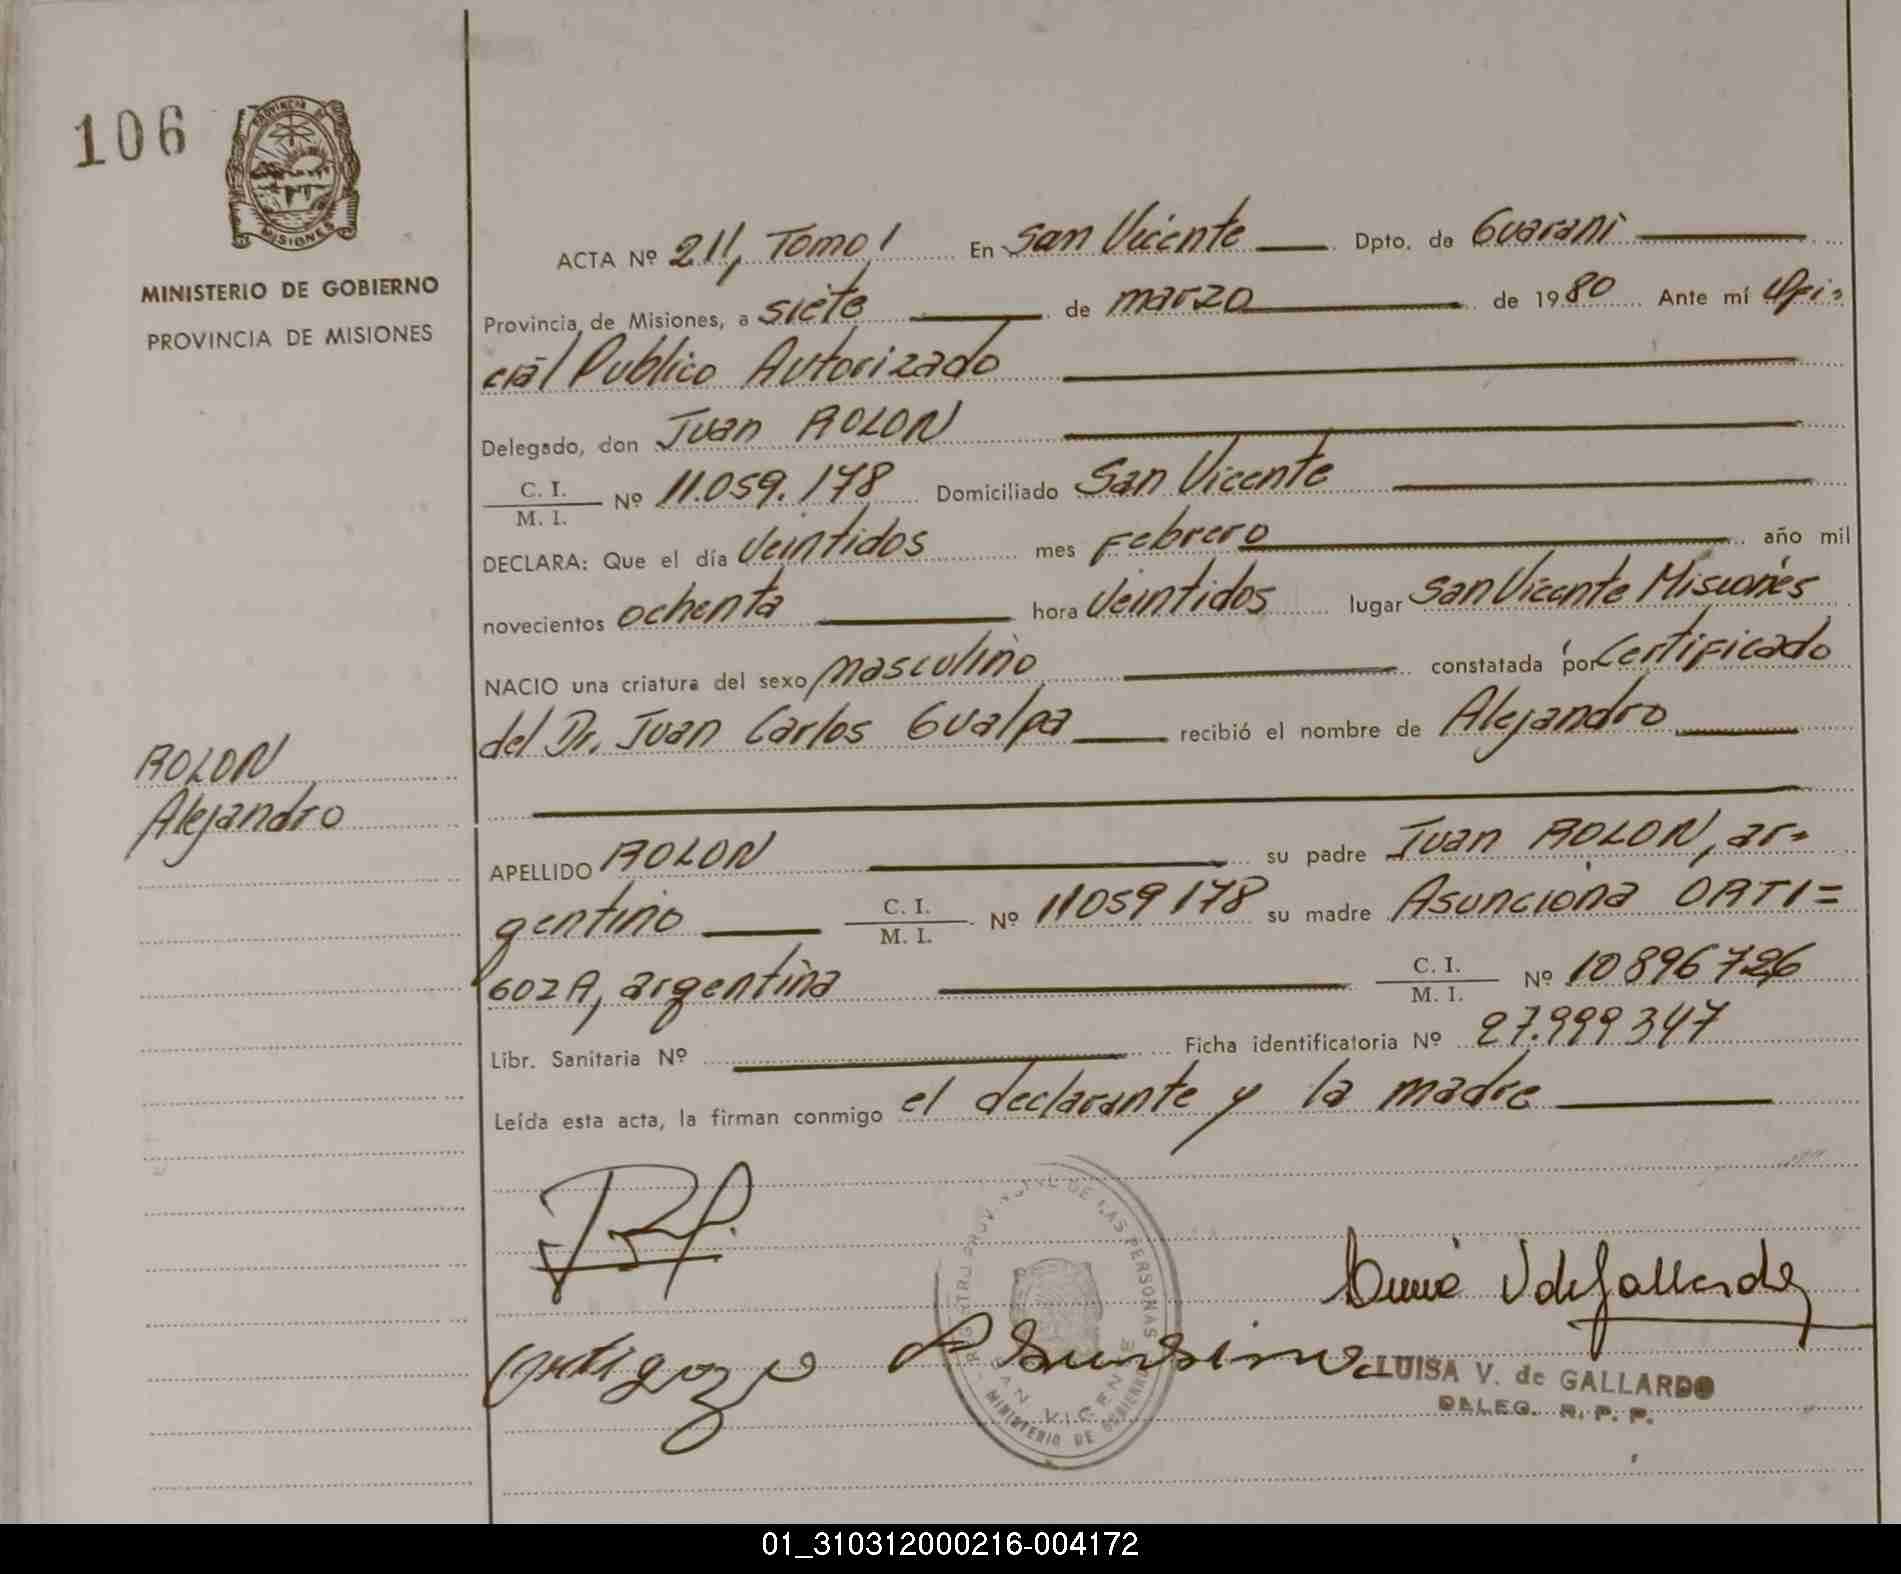 106
PROVINCIA DE
MISIONES
MINISTERIO DE GOBIERNO
PROVINCIA DE MISIONES
ACTA Nº 211, Tomo I En San Vicente Dpto. de Guaraní
Provincia de Misiones, a siete de marzo de 1980 Ante mí Ofi=
cial Publico Autorizado
Delegado, don Juan ROLON
C. I.
M. I. Nº 11.059.178 Domiciliado San Vicente
DECLARA: Que el día veintidos mes Febrero año mil
novecientos ochenta hora veintidos lugar San Vicente Misiones
NACIO una criatura del sexo masculino constatada por Certificado
del Dr. Juan Carlos Gualpa recibió el nombre de Alejandro
ROLON
Alejandro
APELLIDO ROLON su padre Juan ROLON, ar=
gentino C. I.
M. I. Nº 11059178 su madre Asunciona ORTI=
GOZA, argentina C. I.
M. I. Nº 10896726
Libr. Sanitaria Nº Ficha identificatoria Nº 27.999347
Leída esta acta, la firman conmigo el declarante y la madre
REGISTRO PROVINCIAL DE LAS PERSONAS
SAN VICENTE
MINISTERIO DE GOBIERNO
V de Gallardo
LUISA V. de GALLARDO
DALEG. R. P. P.
01_310312000216-004172